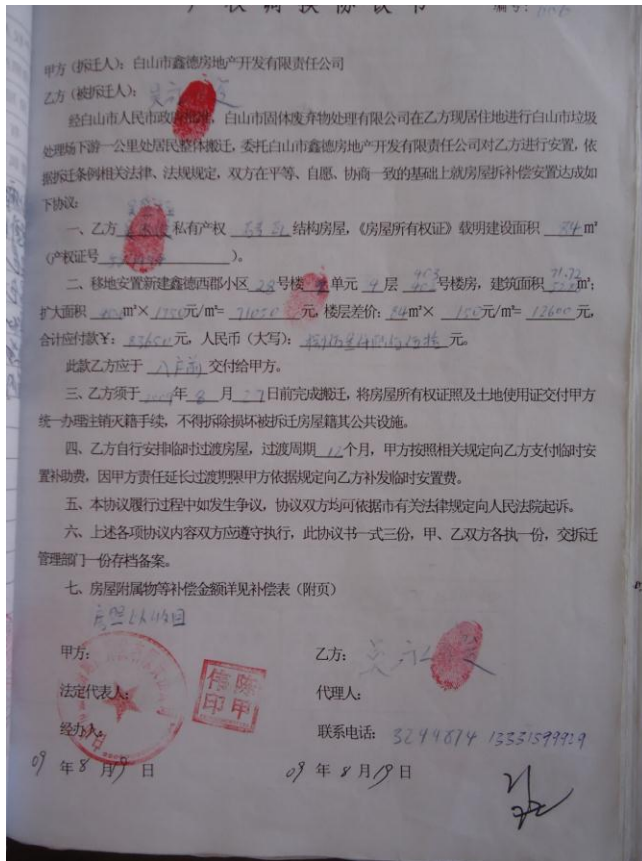 产权调换协议书 编号：
甲方（拆迁人）：白山市鑫德房地产开发有限责任公司
乙方（被拆迁人）：
经白山市人民市政府批准，白山市固体废弃物处理有限公司在乙方现居住地进行白山市垃圾
处理场下游一公里处居民整体搬迁，委托白山市鑫德房地产开发有限责任公司对乙方进行安置，依
据拆迁条例相关法律、法规规定，双方在平等、自愿、协商一致的基础上就房屋拆补偿安置达成如
下协议：
一、乙方 私有产权 结构房屋，《房屋所有权证》载明建设面积 84 m²
（产权证号 ）。
二、移地安置新建鑫德西郡小区 28 号楼 单元 4 层 403 号楼房，建筑面积 71.72 m²；
扩大面积 m²× 1750 元/m²= 71050 元，楼层差价：84 m²× 150 元/m²= 12600 元，
合计应付款¥：83650 元，人民币（大写）： 元。
此款乙方应于 交付给甲方。
三、乙方须于 2009 年 8 月 27 日前完成搬迁，将房屋所有权证照及土地使用证交付甲方
统一办理注销灭籍手续，不得拆除损坏被拆迁房屋籍其公共设施。
四、乙方自行安排临时过渡房屋，过渡周期 12 个月，甲方按照相关规定向乙方支付临时安
置补助费，因甲方责任延长过渡期限甲方依据规定向乙方补发临时安置费。
五、本协议履行过程中如发生争议，协议双方均可依据市有关法律规定向人民法院起诉。
六、上述各项协议内容双方应遵守执行，此协议书一式三份，甲、乙双方各执一份，交拆迁
管理部门一份存档备案。
七、房屋附属物等补偿金额详见补偿表（附页）
房照已收回
甲方： 乙方：
法定代表人： 代理人：
经办人： 联系电话：3244874 13331599929
09 年 8 月 19 日 09 年 8 月 19 日